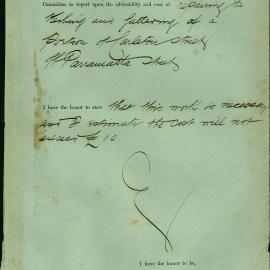 Committee to report upon the advisability and cost of repairing the
Kerbing and guttering of a
portion of Carleton Street
Parramatta Street
I have the honor to state that this work is necessary
and I estimate the cost will not
exceed £10
I have the honor to be,